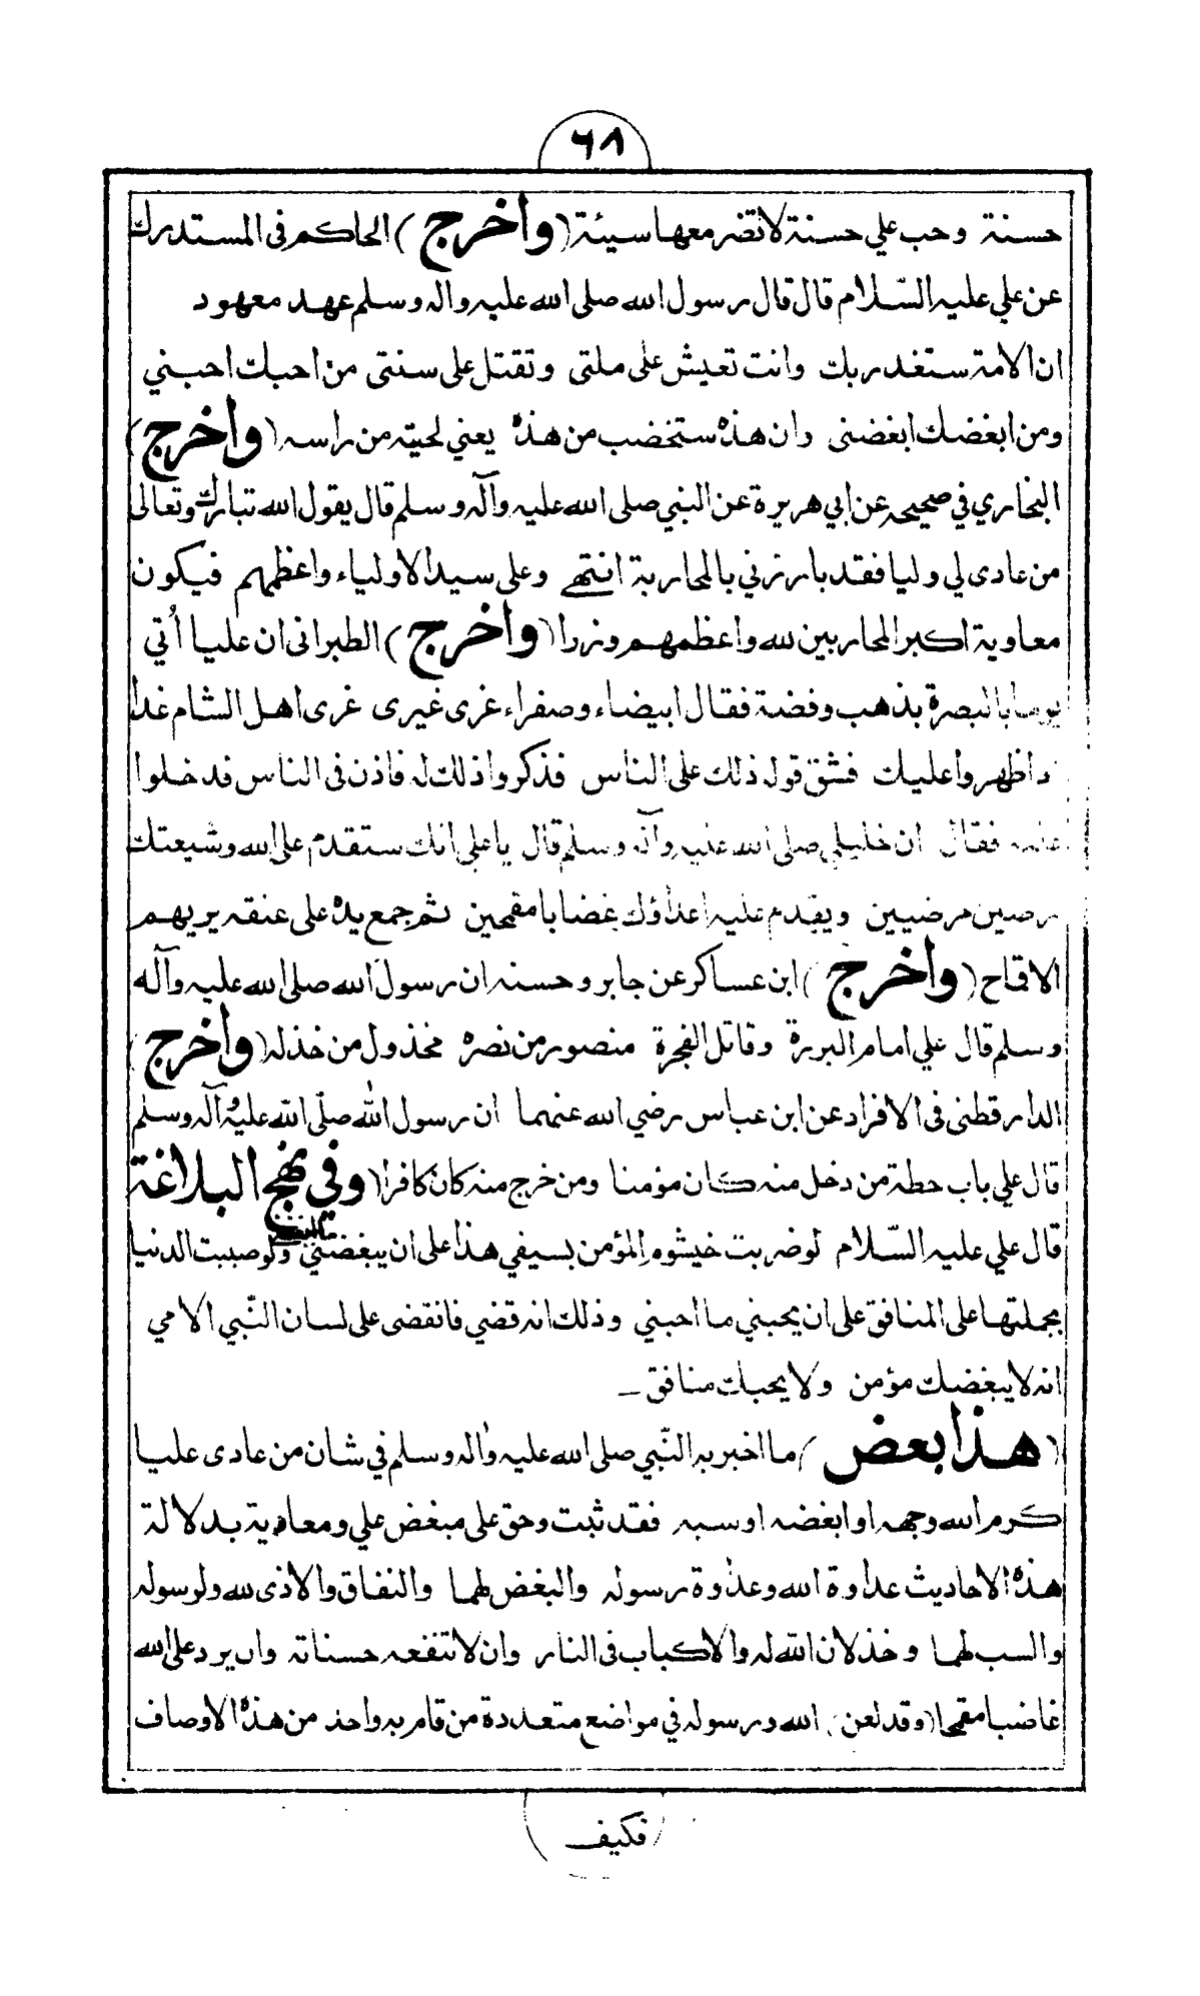 ٦٨
حسنة وحب علي حسنة لا تضر معها سيئة (وأخرج) الحاكم فى المستدرك
عن علي عليه السّلام قال قال رسول الله صلى الله عليه واله وسلم عهد معهود
ان الامة ستغدر بك وانت تعيش على ملتى وتقتل على سنتى من احبك احبني
ومن ابغضك ابغضنى وان هذه ستخضب من هذه يعني لحيته من راسه (وأخرج)
البخاري في صحيحه عن ابي هريرة عن النبي صلى الله عليه وآله وسلم قال يقول الله تبارك وتعالى
من عادى لي وليا فقد بارزني بالمحاربة انتهى وعلى سيد الاولياء واعظمهم فيكون
معاوية اكبر المحاربين لله واعظمهم وزرا (وأخرج) الطبرانى ان عليا أتي
يوما بالبصرة بذهب وفضة فقال ابيضاء وصفراء غرى غيرى غرى اهل الشام غدا
اذا ظهروا عليك فشق قوله ذلك على الناس فذكروا ذلك له فاذن فى الناس فدخلوا
عليه فقال ان خليلي صلى الله عليه وآله وسلم قال يا علي انك ستقدم على الله وشيعتك
راضين مرضيين ويقدم عليه اعداؤك غضابا مقمحين ثم جمع يده على عنقه يريهم
الاقماح (وأخرج) ابن عساكر عن جابر وحسنه ان رسول الله صلى الله عليه وآله
وسلم قال علي امام البررة وقاتل الفجرة منصور من نصره مخذول من خذله (وأخرج)
الدارقطنى فى الافراد عن ابن عباس رضي الله عنهما ان رسول الله صلّى الله عليه وآله وسلم
قال علي باب حطة من دخل منه كان مؤمنا ومن خرج منه كان كافرا (وفي نهج البلاغة
قال علي عليه السّلام لو ضربت خيشوم المؤمن بسيفي هذا على ان يبغضني ما ابغضني ولو صببت الدنيا
بجملتها على المنافق على ان يحبني ما احبني وذلك انه قضي فانقضى على لسان النّبي الامي
انه لا يبغضك مؤمن ولا يحبك منافق ــ
(هذا بعض) ما اخبر به النّبي صلى الله عليه واله وسلم في شان من عادى عليا
كرم الله وجهه او ابغضه او سبه فقد ثبت وحق على مبغض علي ومعاديه بدلالة
هذه الاحاديث عداوة الله وعداوة رسوله والبغض لهما والنفاق والاذى لله ولرسوله
والسب لهما وخذلان الله له والاكباب فى النار وان لا تنفعه حسناته وان يرد على الله
غاضبا مقمحا (وقد لعن) الله ورسوله في مواضع متعددة من قام به واحد من هذه الاوصاف
فكيف